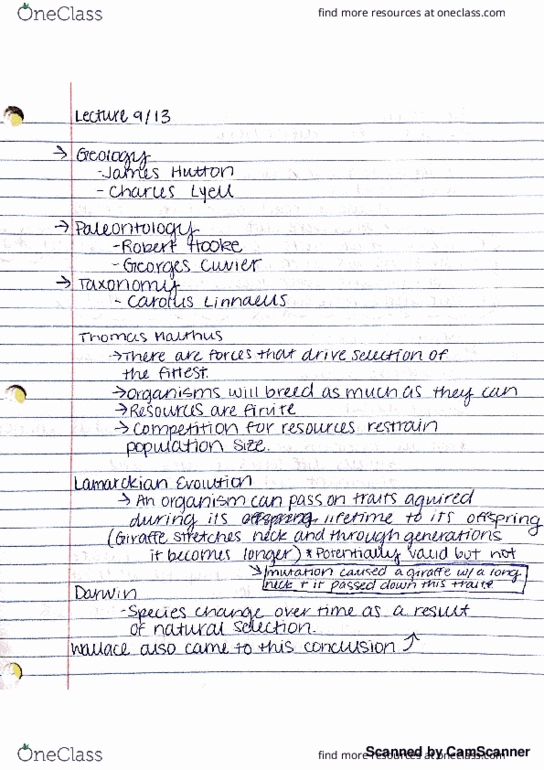 OneClass
find more resources at oneclass.com
Lecture 9/13
→ Geology
- James Hutton
- Charles Lyell
→ Paleontology
- Robert Hooke
- Georges Cuvier
→ Taxonomy
- Carolus Linnaeus
Thomas Malthus
→ There are forces that drive selection of
the fittest.
→ Organisms will breed as much as they can
→ Resources are finite
→ Competition for resources restrain
population size.
Lamarckian Evolution
→ An organism can pass on traits aquired
during its offspring lifetime to its offspring
(Giraffe stretches neck and through generations
it becomes longer) * Potentially valid but not
↳ mutation caused a giraffe w/ a long
neck + it passed down this traite
Darwin
- Species change over time as a result
of natural selection.
Wallace also came to this conclusion ↗
OneClass
find more resources at oneclass.com
Scanned by CamScanner